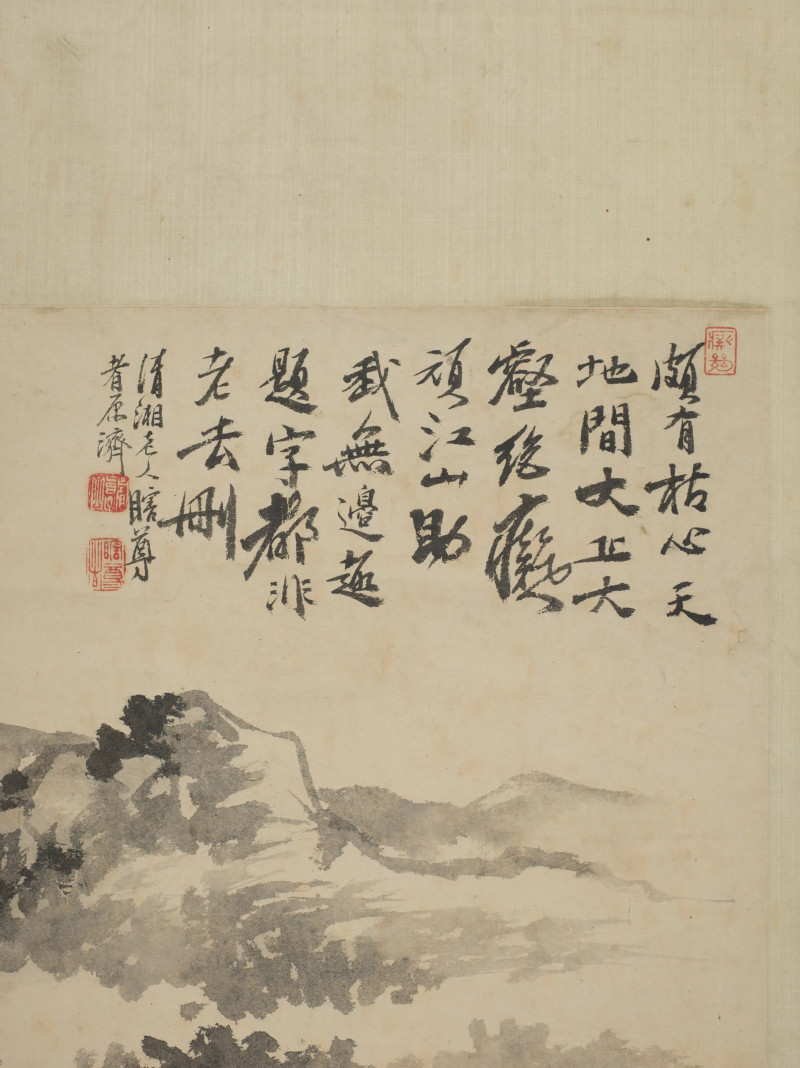 頗有枯心天
地間大丘大
壑絕癡
頑江山助
我無邊趣
題字都非
老去刪
清湘老人瞎尊
者原濟